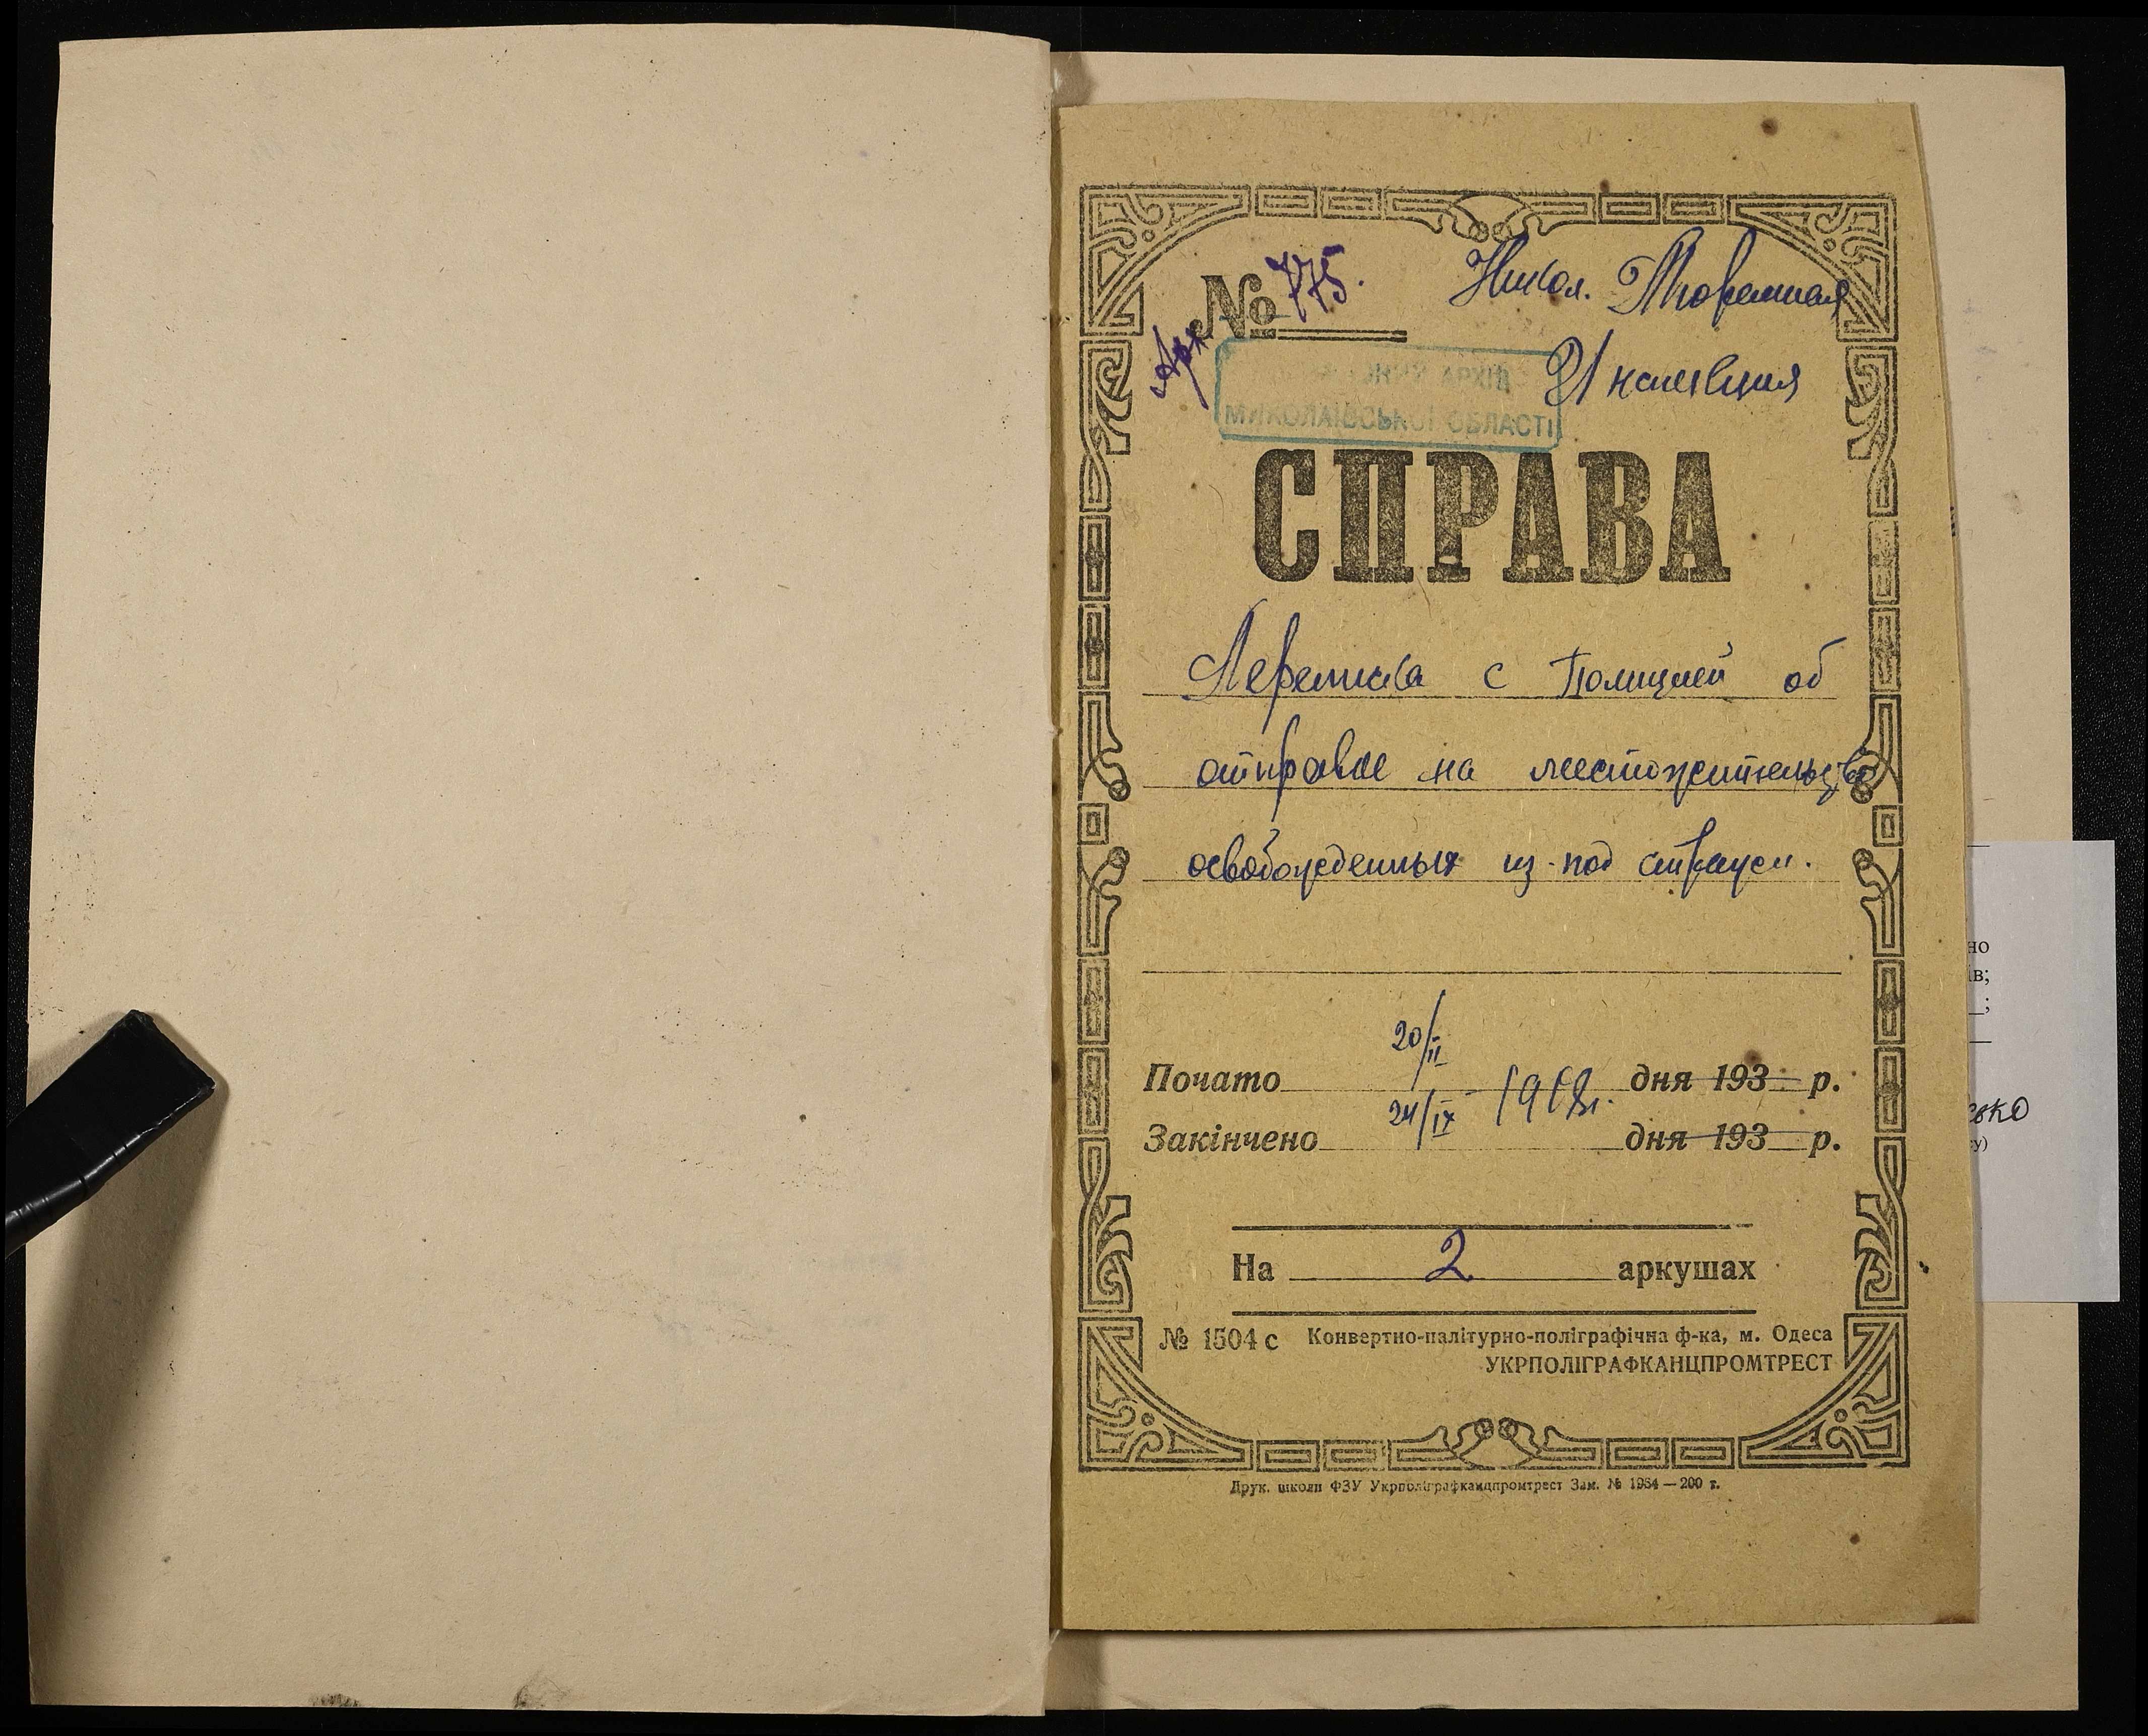 Арх. № 775.
Никол. Тюремная
Инспекция
АРХІВ
МИКОЛАЇВСЬКОЇ ОБЛАСТІ
СПРАВА
Переписка с Полицией об
отправке на местожительство
освобожденных из-под стражи.
20/II
Почато 1918г. дня 193 р.
24/IX
Закінчено дня 193 р.
На 2 аркушах
№ 1504 с Конвертно-палітурно-поліграфічна ф-ка, м. Одеса
УКРПОЛІГРАФКАНЦПРОМТРЕСТ
Друк. школи ФЗУ Укрполіграфканцпромтрест Зам. № 1954 — 200 т.
но
ів;
ько
су)